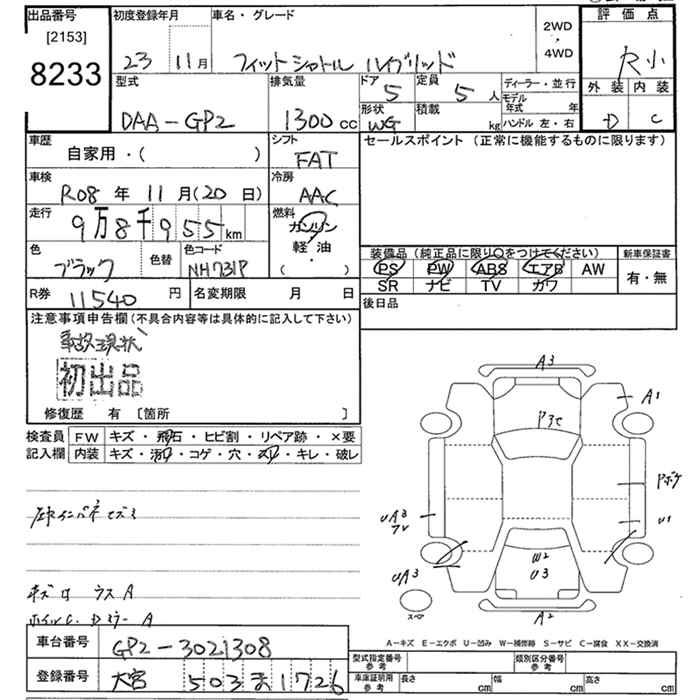 出品番号 [2153] 8233
初度登録年月 23 11月
車名・グレード フィットシャトル ハイブリッド
2WD
4WD
評価点 R小
外装 内装
D C
型式 DAA-GP2
排気量 1300 cc
ドア 5
定員 5 人
形状 WG
積載 kg
ディーラー・並行
モデル年式 年
ハンドル 左・右
車歴 自家用・( )
シフト FAT
セールスポイント (正常に機能するものに限ります)
車検 R08 年 11 月(20 日)
冷房 AAC
走行 9万8千955km
燃料 ガソリン 軽・油 ( )
色 ブラック
色替
色コード NH731P
装備品(純正品に限り○をつけてください)
PS PW ABS エアB AW
SR ナビ TV カワ
新車保証書
有・無
R券 11540 円
名変期限 月 日
後日品
注意事項申告欄(不具合内容等は具体的に記入して下さい)
事故現状
初出品
修復歴 有 [箇所 ]
検査員記入欄
FW キズ・飛石・ヒビ割・リペア跡・×要
内装 キズ・汚れ・コゲ・穴・スレ・キレ・破レ
キズ
A
A
車台番号 GP2-3021308
登録番号 大宮 503 ま 1726
A3
A1
U1
UA3
W2
U3
UA3
スペア
A2
A-キズ E-エクボ U-凹み W-補修跡 S-サビ C-腐食 XX-交換済
型式指定番号 参考
類別区分番号 参考
車庫証明用 参考
長さ cm
幅 cm
高さ cm